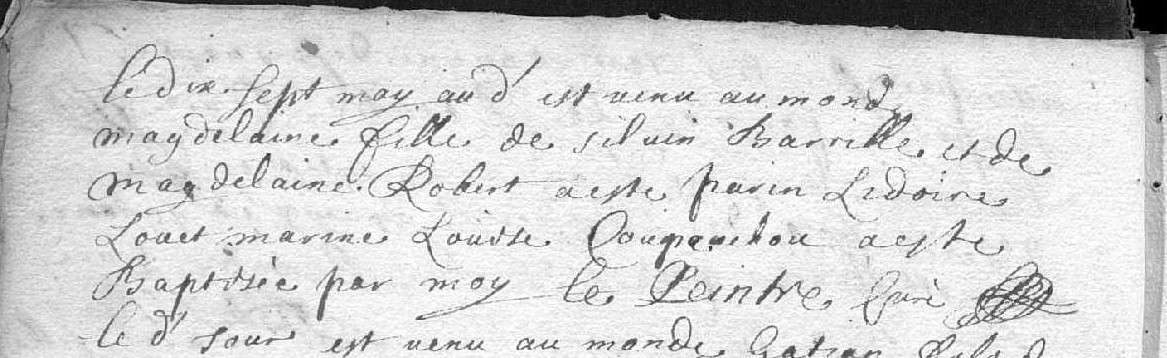 le dix sept may aud' est venu au monde
magdelaine fille de silvin Barrille et de
magdelaine Robert a este parin Lidoire
Louet marine Louise a este
Baptisée par moy le Peintre Curé
le d' jour est venu au monde Gatian fils d